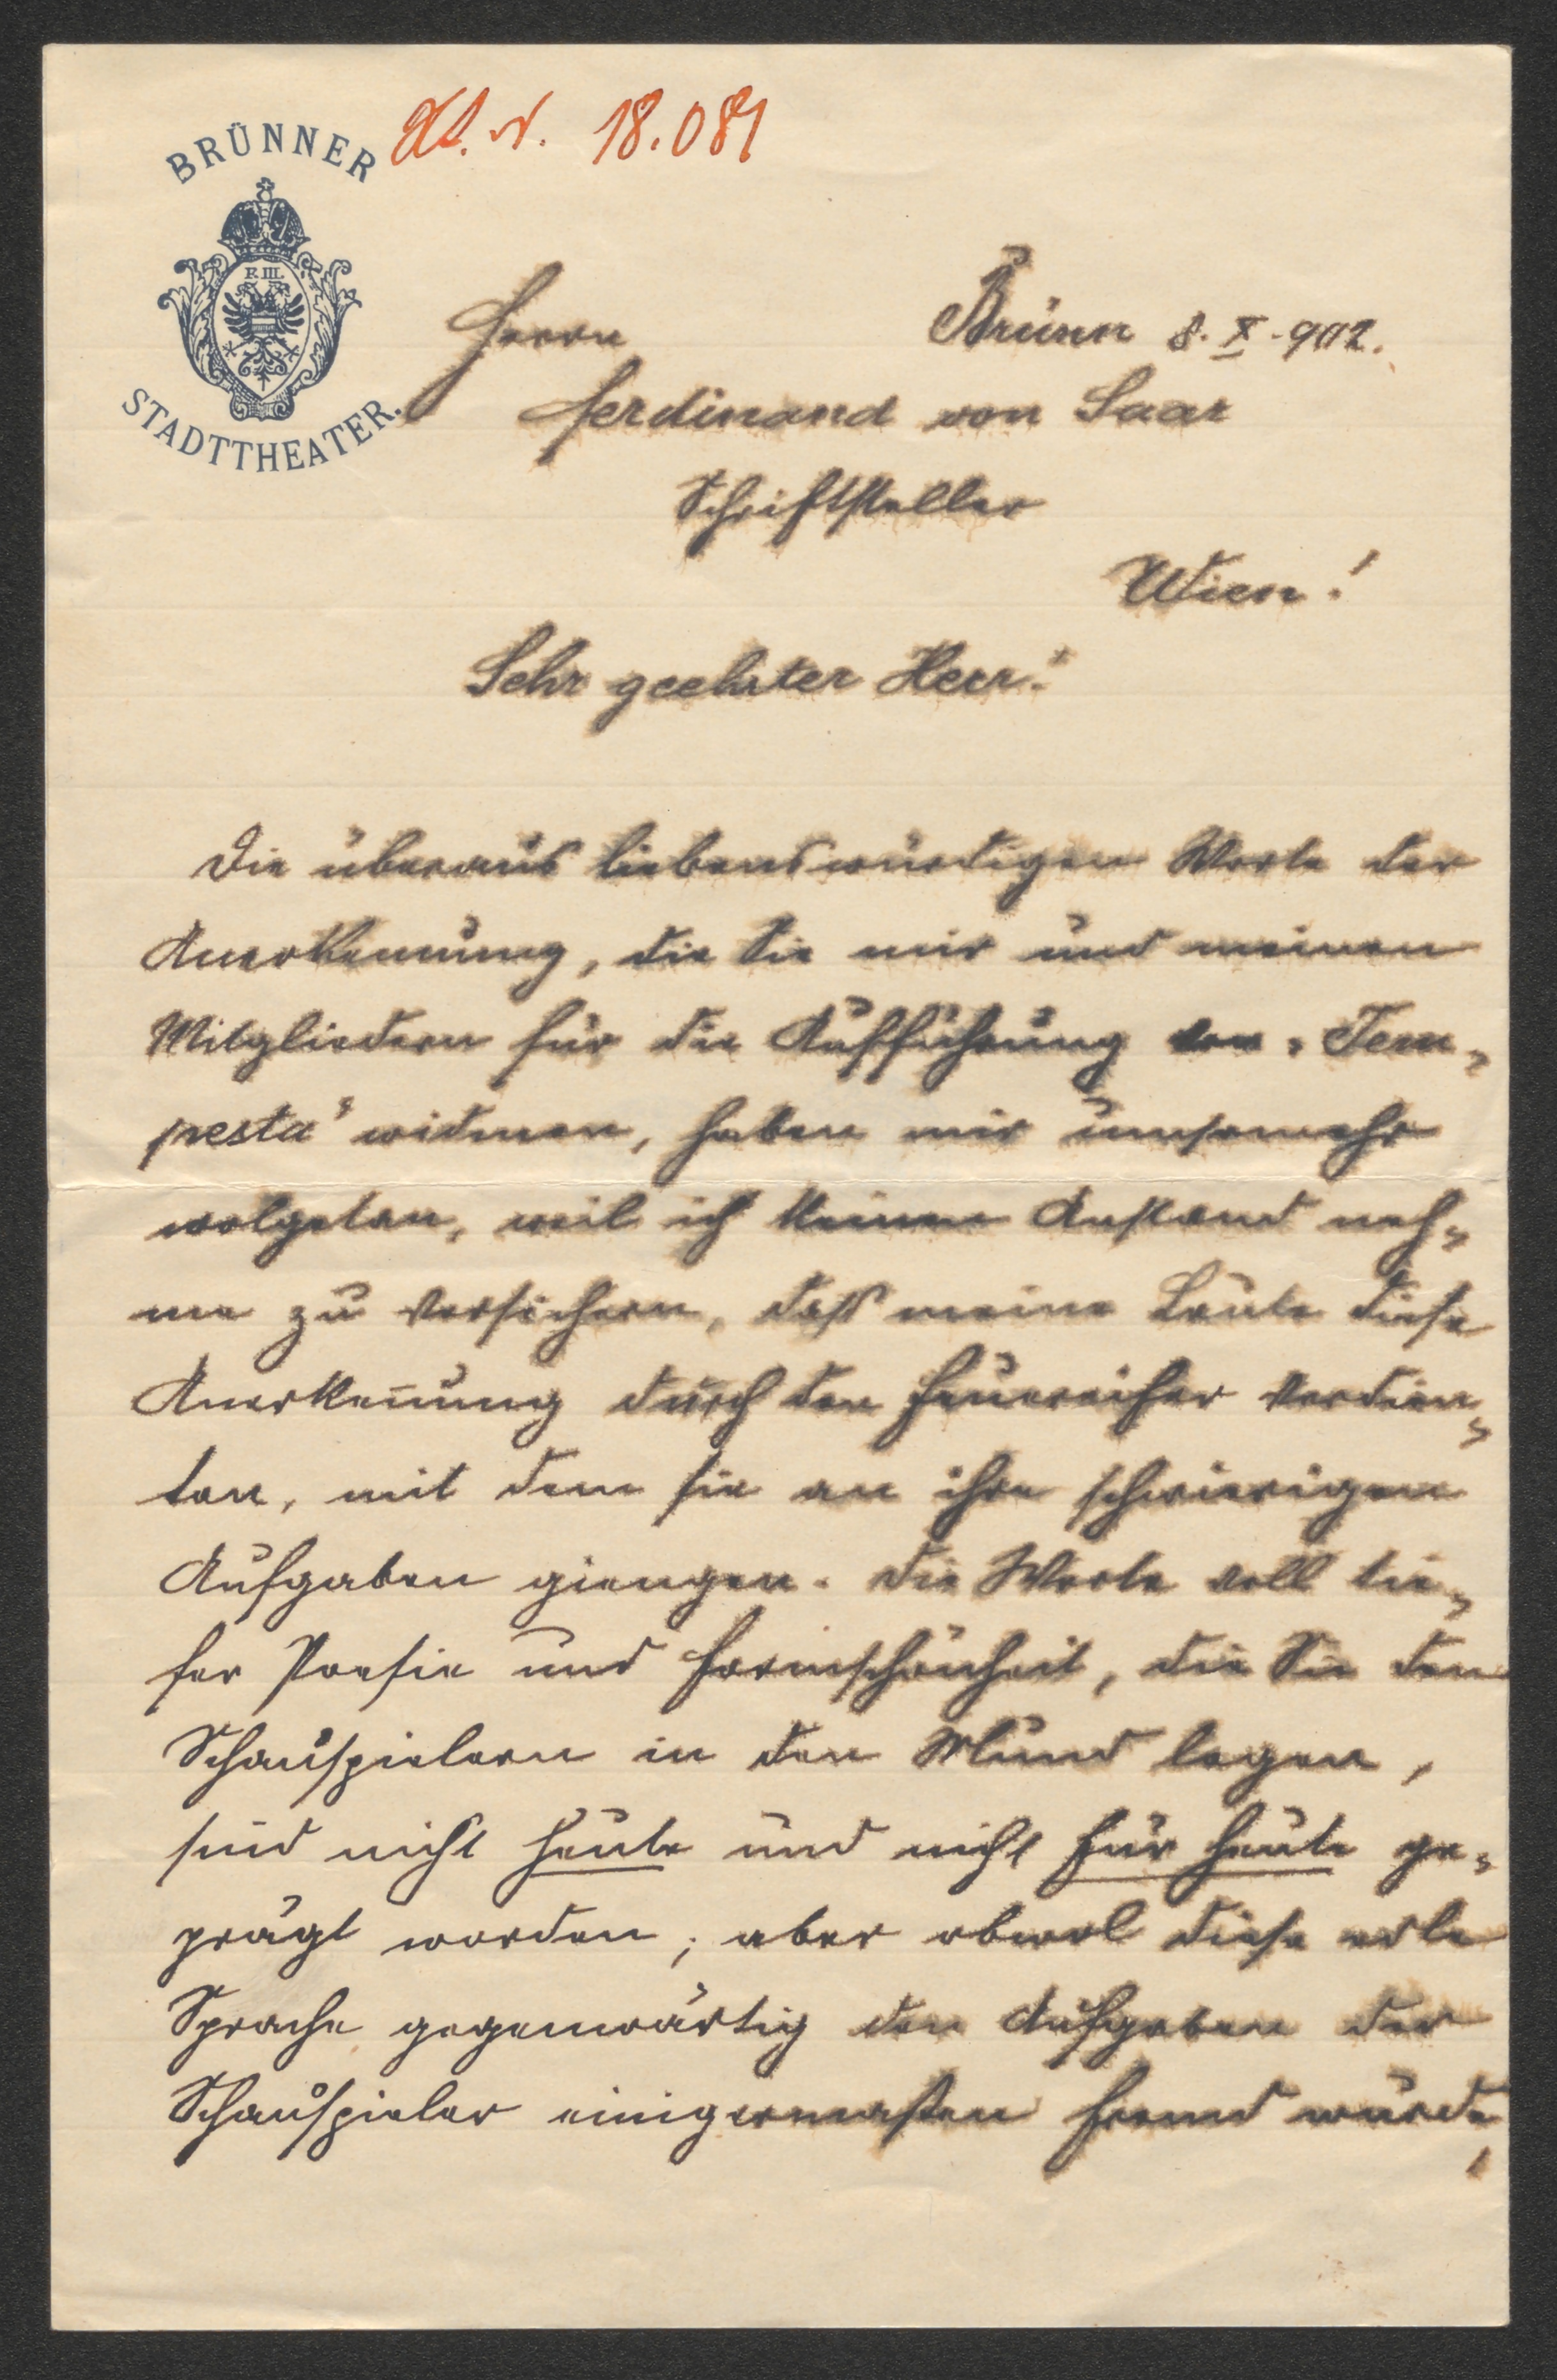 BRÜNNER
STADTTHEATER.
F. III.
18.081
Herrn
Brünn 8. X. 902.
Ferdinand von Saar
Schriftsteller
Wien!
Sehr geehrter Herr!
Die überaus liebenswürdigen Worte der
Anerkennung, die Sie mir und meinen
Mitgliedern für die Aufführung von „Tem„
pesta" widmen, haben mir umsomehr
wolgetan, weil ich keinen Anstand neh„
me zu versichern, dass meine Leute diese
Anerkeñung durch den Feuereifer verdien„
ten, mit dem sie an ihre schwierigen
Aufgaben giengen. Die Worte voll tie„
fer Poesie und Formschönheit, die Sie den
Schauspielern in den Mund legen,
sind nicht heute und nicht für heute ge„
prägt worden; aber obwol diese edle
Sprache gegenwärtig den Aufgaben der
Schauspieler einigermaßen fremd wurde,